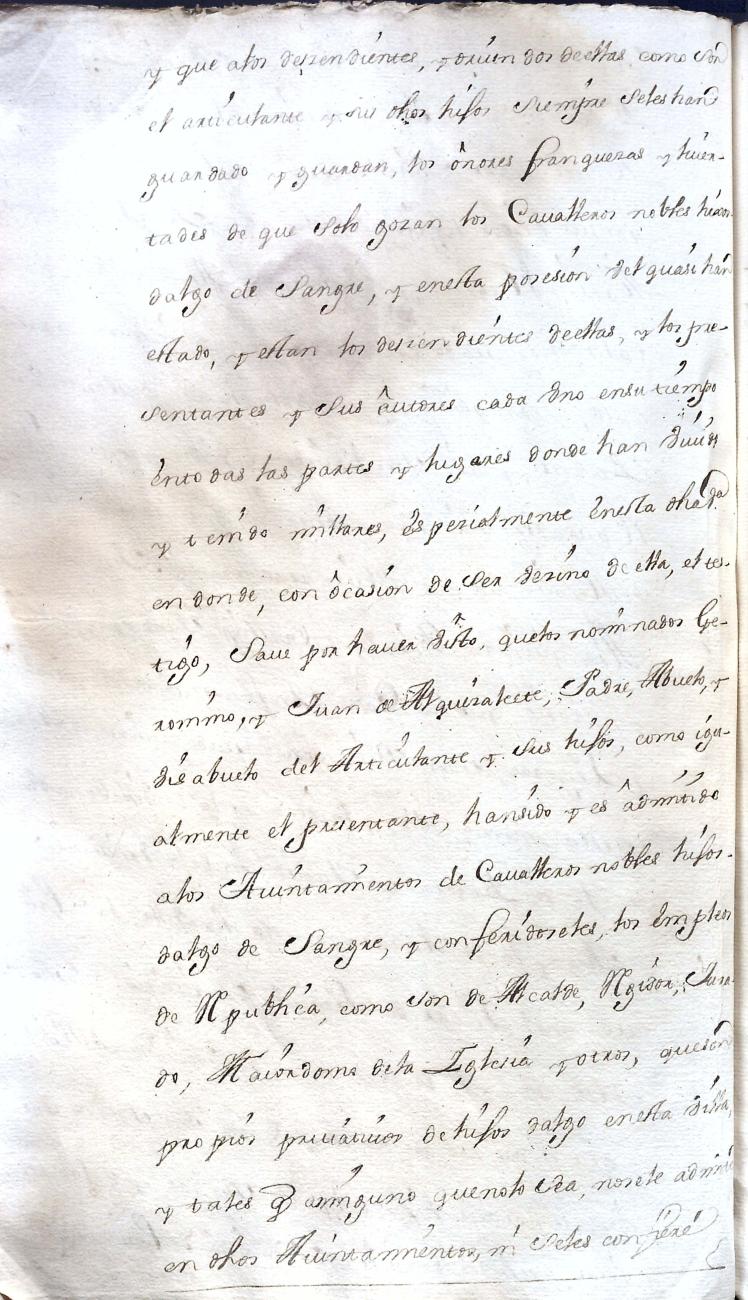 y que alos deszendientes, y oriundos deellas como son
el articulante y sus dhos hijos siempre seles han
guardado y guardan, los onores franquezas y liver-
tades de que solo gozan los Cavalleros nobles hixos
dalgo de Sangre, y enesta posesion del quasi han
estado, y estan los deszendientes deellas, y los pre-
sentantes y sus autores cada vno ensu tiempo
entodas las partes y lugares donde han viuido
y tenido millares, espezialmente enesta dha va
en donde, con ocasion de ser vezino de ella, el tes-
tigo, save por haver visto, quelos nominados Ge-
ronimo, y Juan de Alquizalete, Padre, Abuelo, y
visabuelo del Articulante y sus hijos, como igu-
almente el presentante, hansido y es admitido
alos Aiuntamientos de Cavalleros nobles hijos-
dalgo de Sangre, y conferidoseles, los empleos
de Republica, como son de Alcalde, Regidor, Jura-
do, Maiordomo dela Iglesia y otros, queson
propios privativos de hijos dalgo enesta villa,
y tales q aninguno quenolo sea, nosele admite
en dhos Aiuntamientos, ni seles confiere